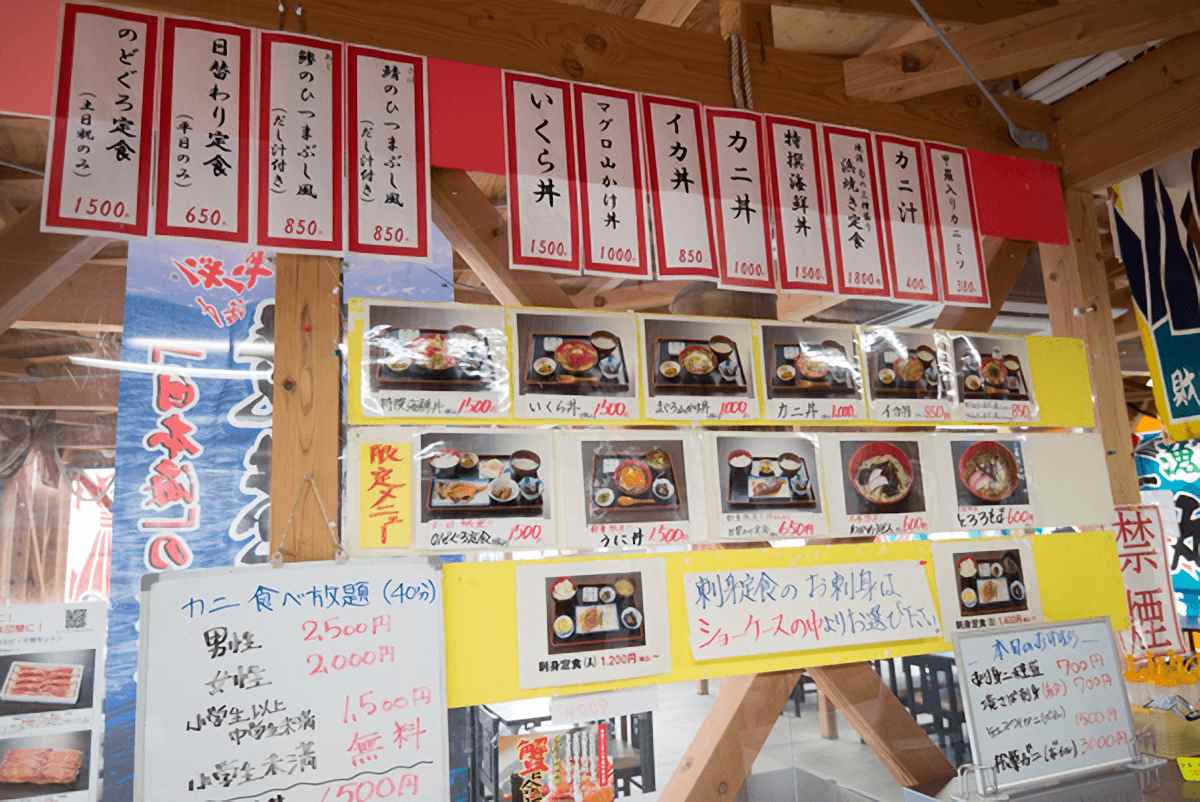 のどぐろ定食
(土日祝のみ)
1500円
日替わり定食
(平日のみ)
650円
鯵のひつまぶし風
(だし汁付き)
850円
鯖のひつまぶし風
(だし汁付き)
850円
いくら丼
1500円
マグロ山かけ丼
1000円
イカ丼
850円
カニ丼
1000円
特撰海鮮丼
1500円
浜焼き定食
1800円
カニ汁
400円
甲羅入りカニミソ
300円
日本海の
特撰海鮮丼 1500
いくら丼 1500
まぐろ山かけ丼 1000
カニ丼 1,000
イカ丼 850
850
限定メニュー
のどぐろ定食 1500
うに丼 1500
650円
600円
とろろそば 600円
カニ 食べ放題 (40分)
男性 2,500円
女性 2,000円
小学生以上
中学生未満 1,500円
小学生未満 無料
1500円
刺身定食(A) 1,200円
刺身定食の お刺身は
ショーケースの中よりお選び下さい
刺身定食
本日のおすすめ
700円
700円
1500円
3000円
禁煙
財